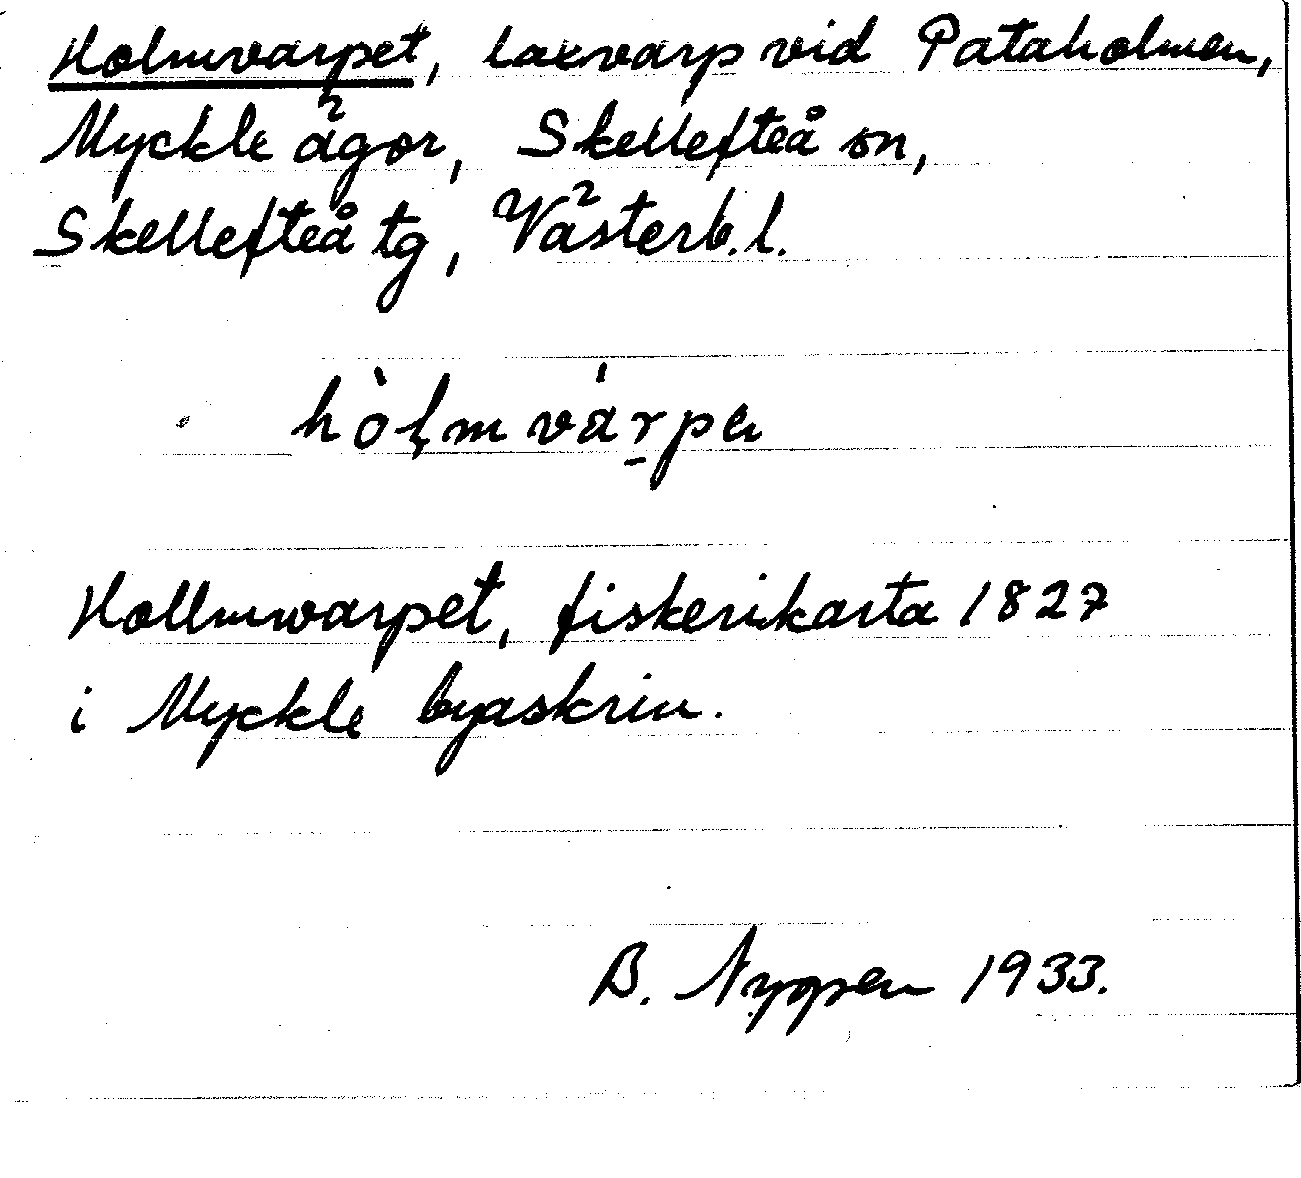 Holmvarpet, laxvarp vid Pataholmen,
Myckle ägor, Skellefteå sn,
Skellefteå tg, Västerb.l.
hòḷmvárpen
Hollmvarpet, fiskerikarta 1827
i Myckle byaskrin.
B. Nygren 1933.